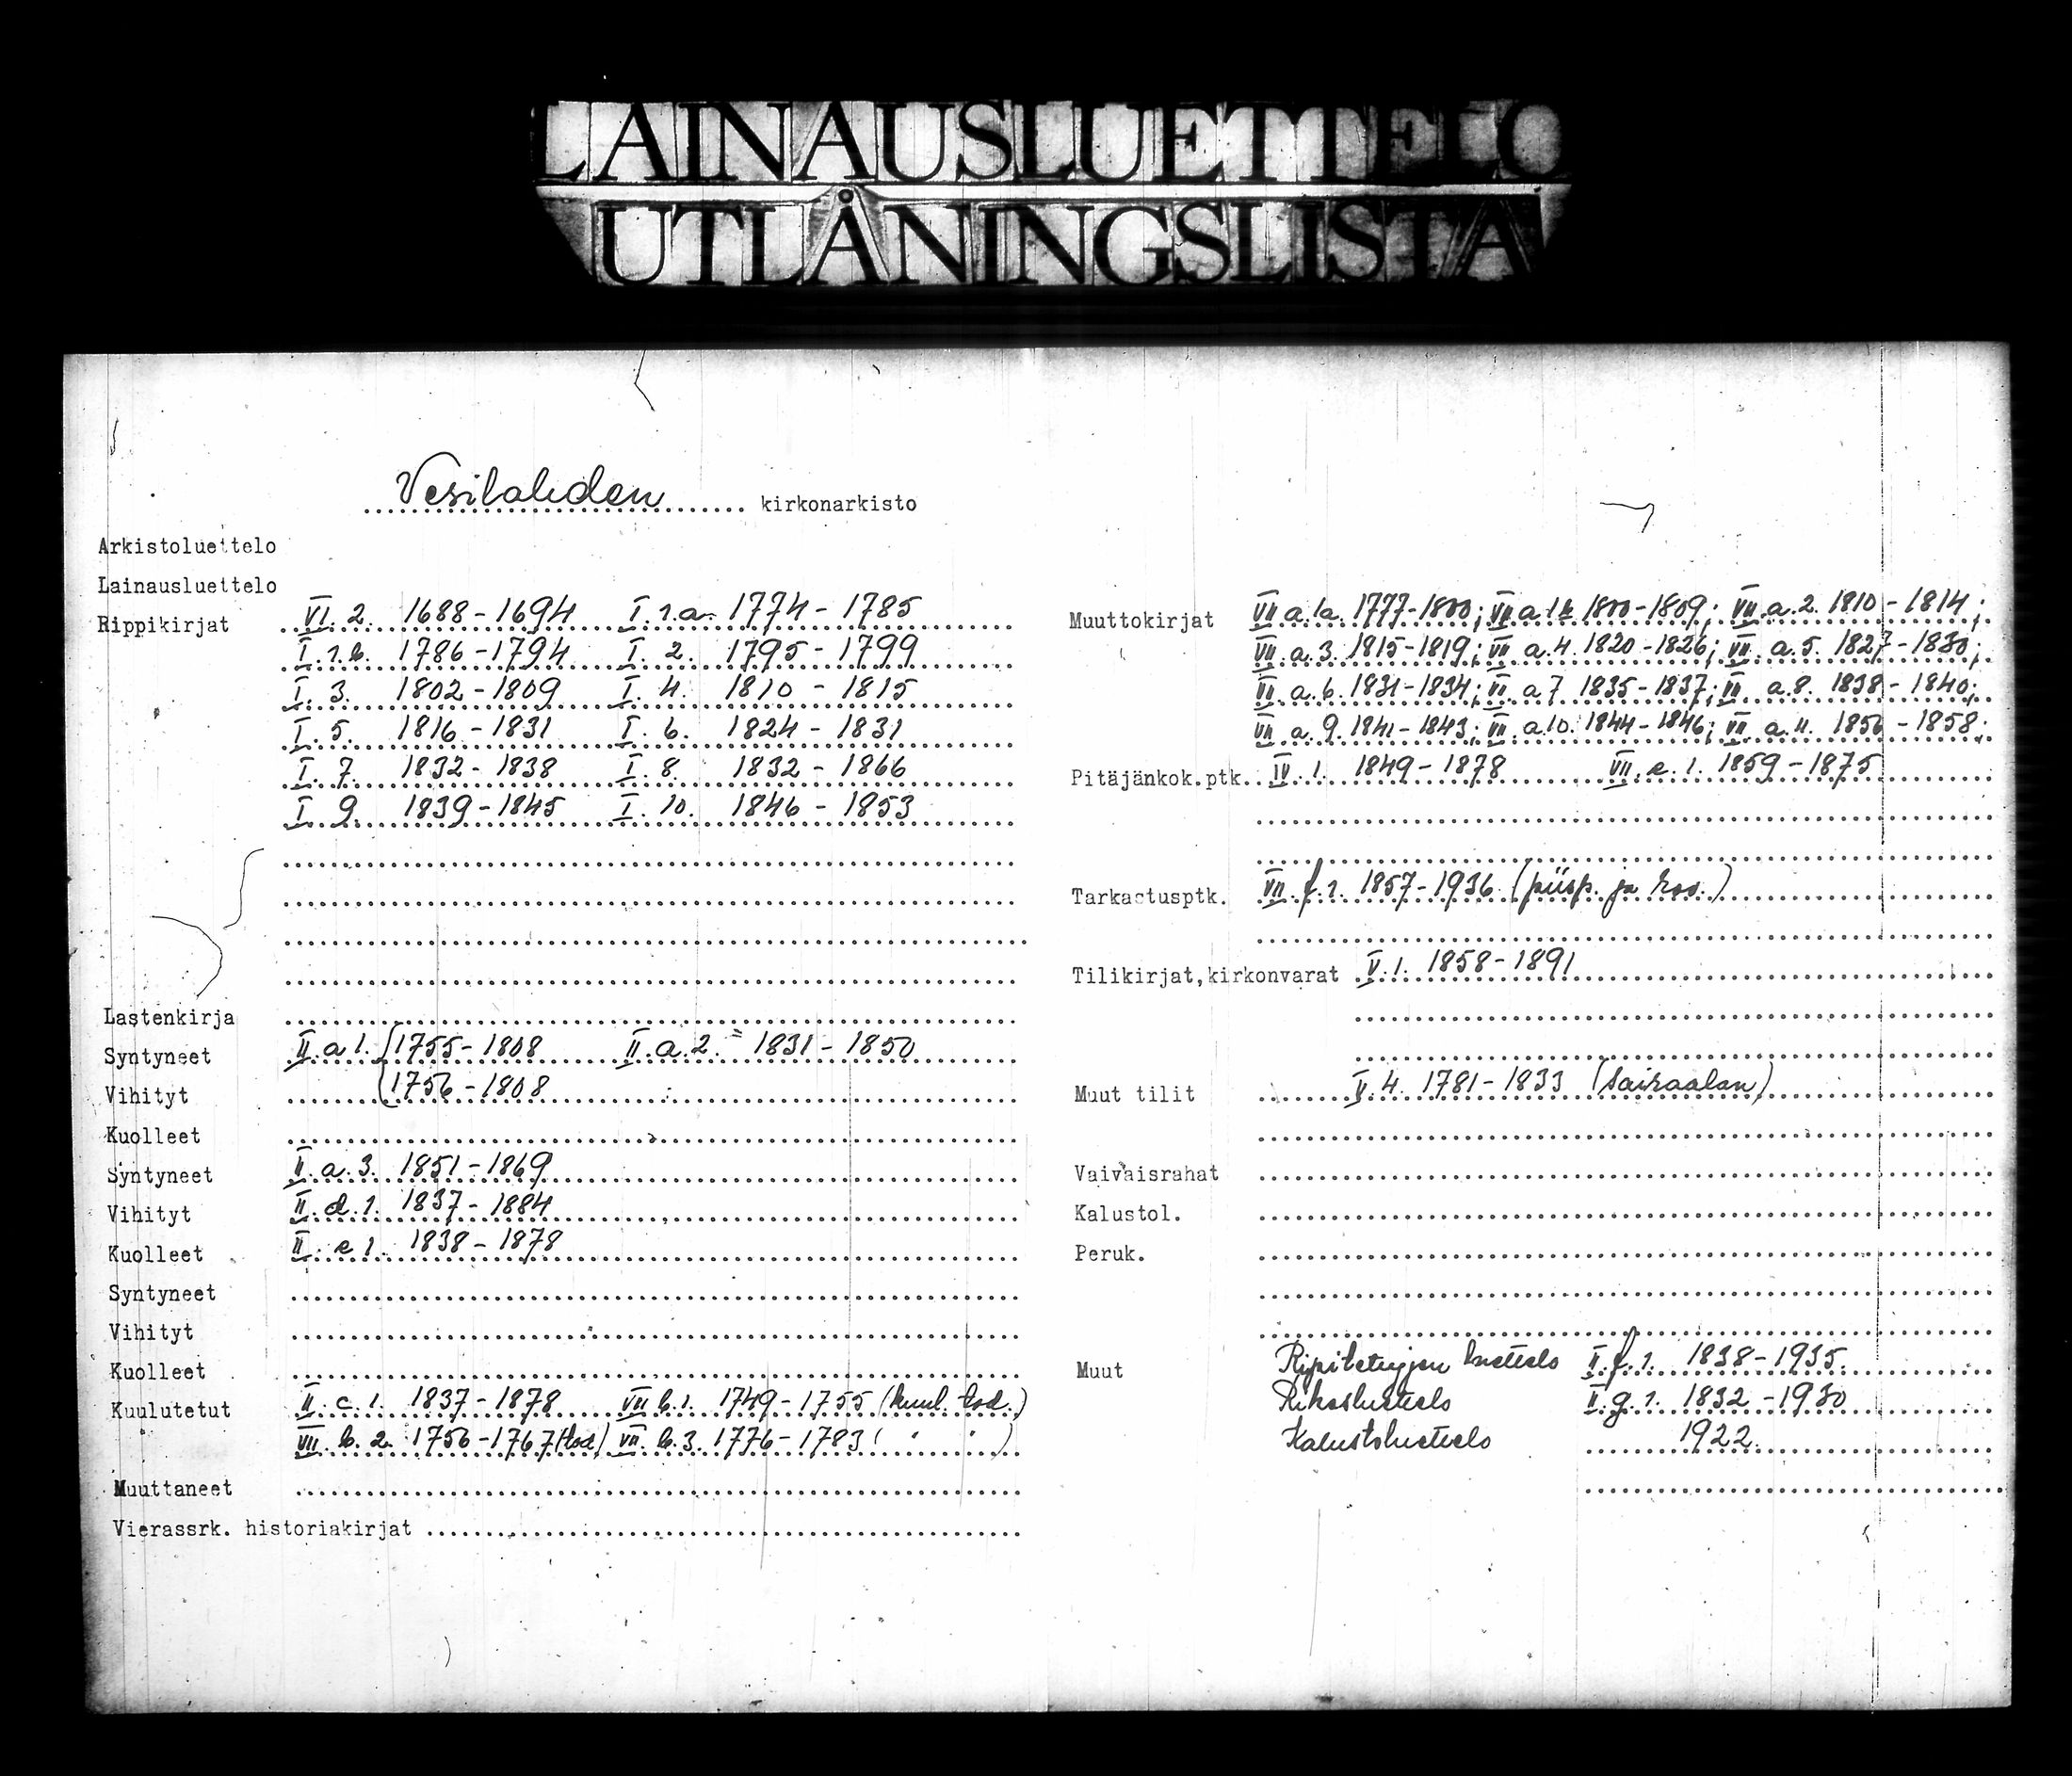 LAINAUSLUETTELO
UTLÅNINGSLISTA
Vesilahden kirkonarkisto
Arkistoluettelo
Lainausluettelo
Rippikirjat VI. 2. 1688-1694 I. 1.a. 1774-1785
I. 1.b. 1786-1794 I. 2. 1795-1799
I. 3. 1802-1809 I. 4. 1810-1815
I. 5. 1816-1831 I. 6. 1824-1831
I. 7. 1832-1838 I. 8. 1832-1866
I. 9. 1839-1845 I. 10. 1846-1853
Lastenkirja
Syntyneet II.a 1. 1755-1808 II.a.2. 1831-1850
Vihityt 1756-1808
Kuolleet
Syntyneet II.a.3. 1851-1869
Vihityt II.d.1. 1837-1884
Kuolleet II.e 1. 1838-1878
Syntyneet
Vihityt
Kuolleet
Kuulutetut II.c.1. 1837-1878 VII b.1. 1749-1755 (kuul. tod.)
VII.b.2. 1756-1767 (tod) VII.b.3. 1776-1783 ( " " )
Muuttaneet
Vierassrk. historiakirjat
Muuttokirjat VII a.1a. 1777-1800; VII a 1b 1800-1809; VII.a.2. 1810-1814;
VII.a.3. 1815-1819; VII a.4. 1820-1826; VII.a.5. 1827-1830;
VII.a.6. 1831-1834; VII.a 7. 1835-1837; VII a.8. 1838-1840;
VII.a.9. 1841-1843; VII.a.10. 1844-1846; VII a.11. 1856-1858;
Pitäjänkok.ptk. IV.1. 1849-1878 VII.e.1. 1859-1875
Tarkastusptk. VII.f.1. 1857-1936 (piisp. ja rov.)
Tilikirjat, kirkonvarat V.1. 1858-1891
Muut tilit V.4. 1781-1833 (sairaalan)
Vaivaisrahat
Kalustol.
Peruk.
Muut Ripiltetujjen luettelo II.f.1. 1838-1935
Rikosluettelo II.g.1. 1832-1930
Kalustoluettelo 1922